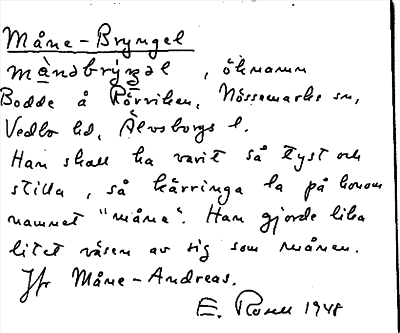 Måne-Bryngel
mànəbrýŋəl, öknamn
Bodde å Rörviken, Nössemarks sn,
Vedbo hd, Älvsborgs l.
Han skall ha varit så tyst och
stilla, så kärringa la på honom
namnet "måna". Han gjorde lika
litet väsen av sig som månen.
Jfr Måne-Andreas.
E. Rosell 1948